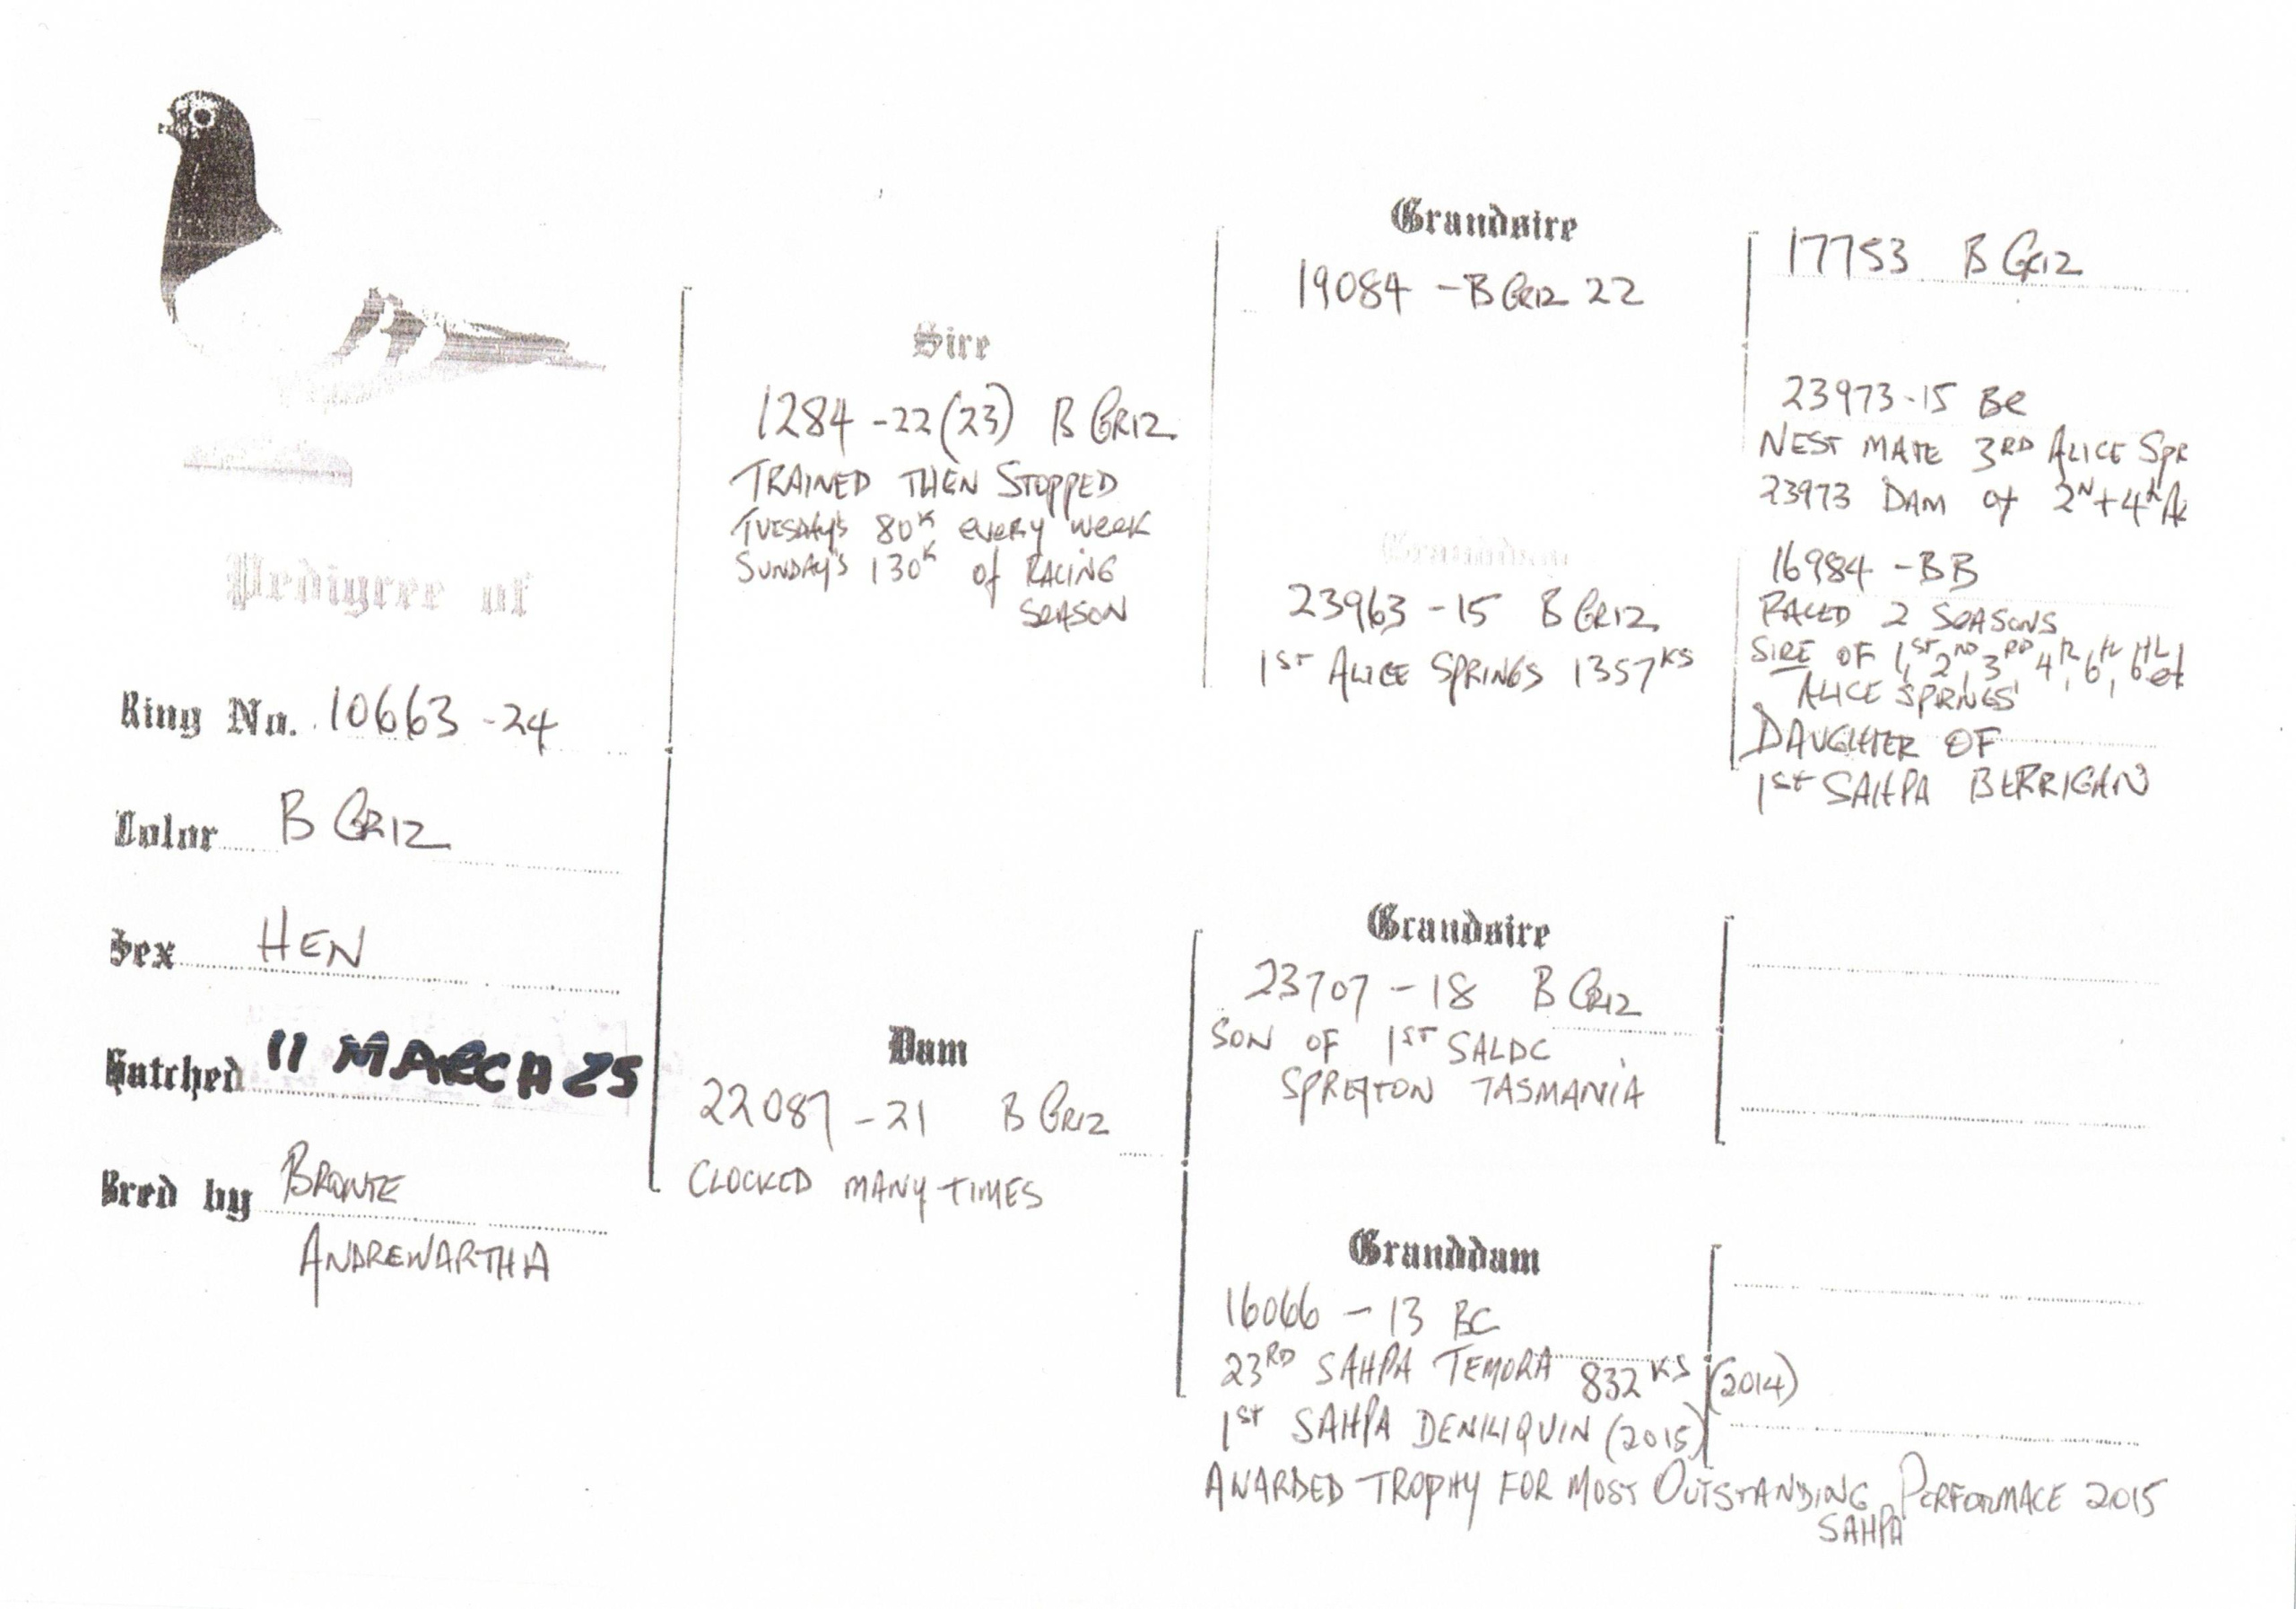 Pedigree of
Ring No. 10663 -24
Color B GRIZ
Sex HEN
Hatched 11 MARCH 25
Bred by BRONTE
ANDREWARTHA
Sire
1284 -22(23) B GRIZ
TRAINED THEN STOPPED
TUESDAY'S 80K every week
SUNDAY'S 130K of RACING
SEASON
Dam
22087 -21 B GRIZ
CLOCKED MANY TIMES
Grandsire
19084 -B GRIZ 22
Granddam
23963 -15 B GRIZ
1ST ALICE SPRINGS 1357KS
Grandsire
23707 -18 B GRIZ
SON OF 1ST SALDC
SPREYTON TASMANIA
Granddam
16066 - 13 BC
23RD SAHPA TEMORA 832KS (2014)
1ST SAHPA DENILIQUIN (2015)
AWARDED TROPHY FOR MOST OUTSTANDING PERFORMACE 2015
SAHPA
17753 B GRIZ
23973-15 BC
NEST MATE 3RD ALICE SPR
23973 DAM of 2N+4th A
16984 -BB
RACED 2 SEASONS
SIRE OF 1ST, 2ND, 3RD, 4th, 6th, 6th et
ALICE SPRINGS
DAUGHTER OF
1st SAHPA BERRIGAN